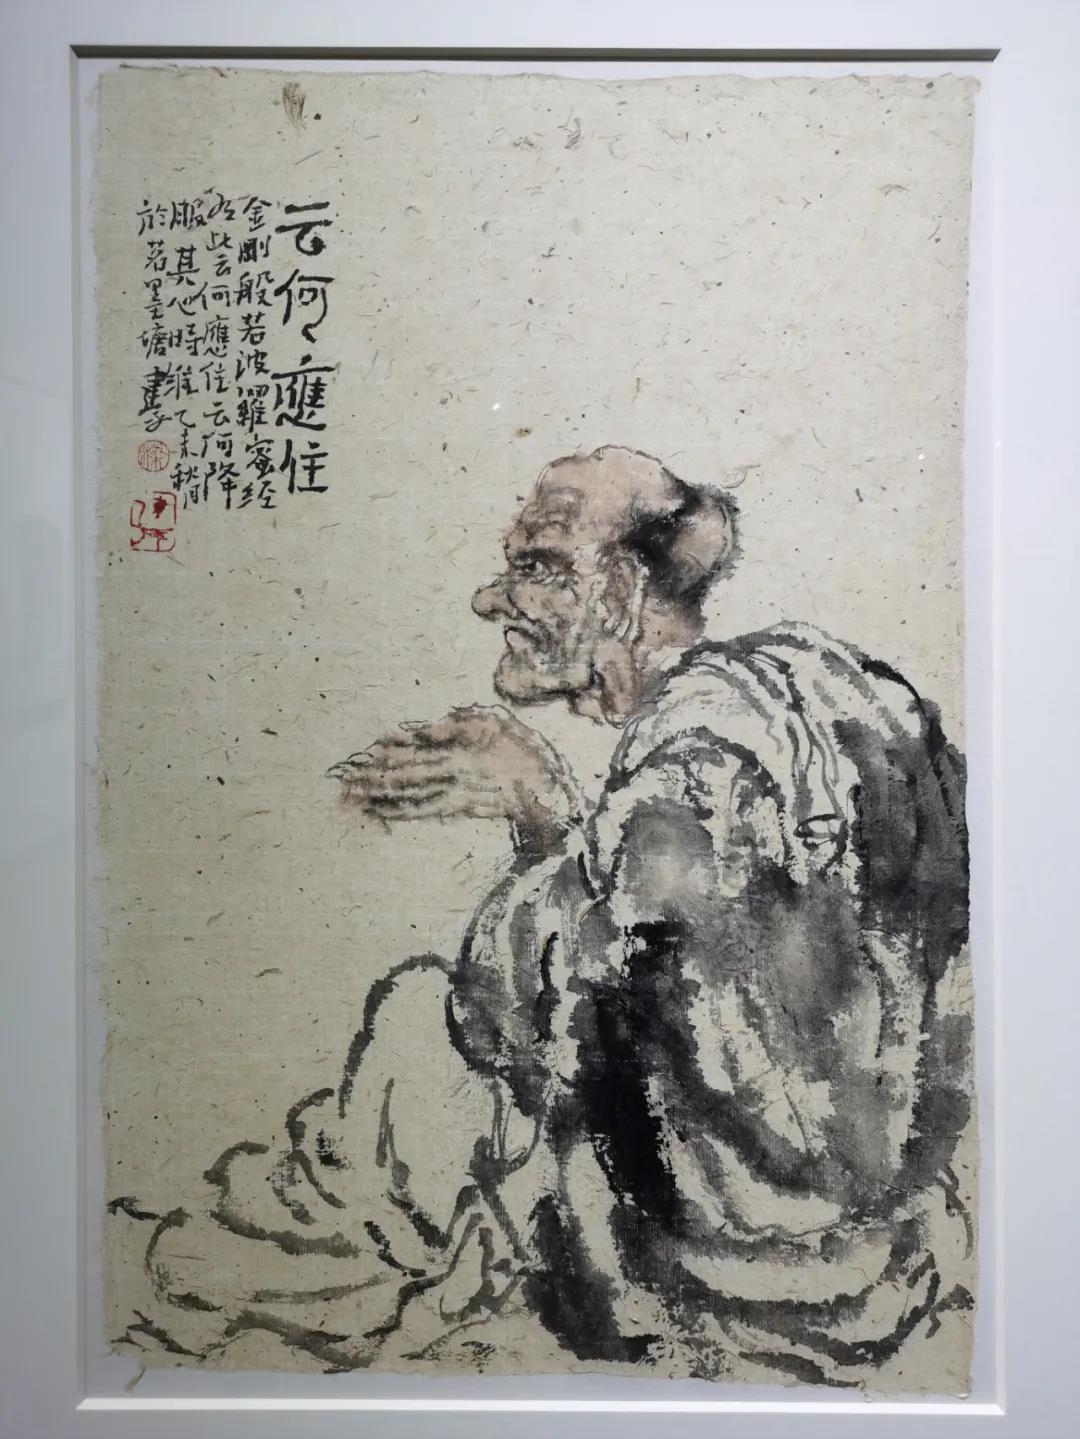 云何應住
金剛般若波羅蜜经
有此云何應住云何降
服其心時维乙未秋月
於若墨塘畫